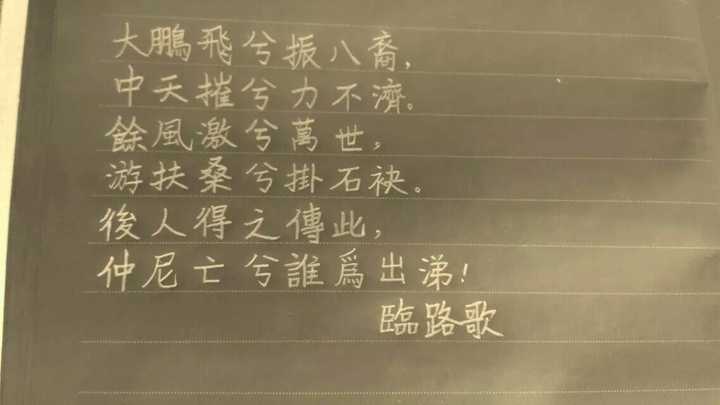 大鵬飛兮振八裔,
中天摧兮力不濟。
餘風激兮萬世,
游扶桑兮掛石袂。
後人得之傳此,
仲尼亡兮誰爲出涕!
臨路歌